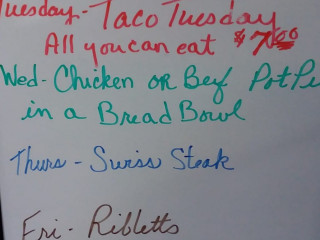 Tuesday - Taco Tuesday
All you can eat $7.00
Wed - Chicken or Beef Pot Pi
in a Bread Bowl
Thurs - Swiss Steak
Fri - Ribletts